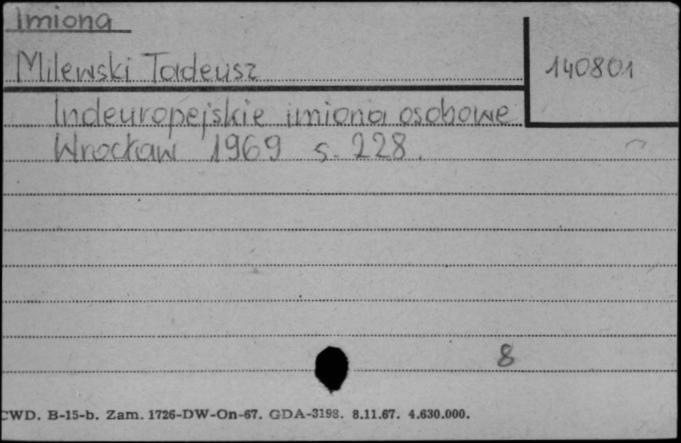 Imiona
Milewski Tadeusz
140801
Indeuropejskie imiona osobowe
Wrocław 1969 s. 228.
8
CWD. B-15-b. Zam. 1726-DW-On-67. GDA-3198. 8.11.67. 4.630.000.